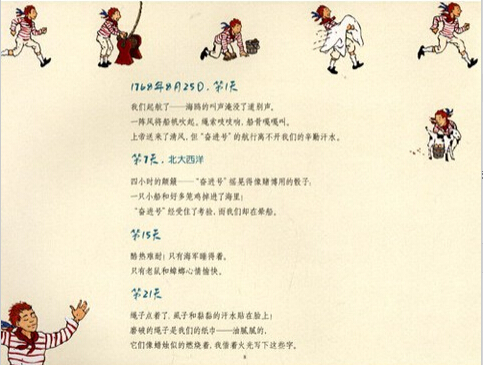 1768年8月25日，第1天
我们起航了——海鸥的叫声淹没了道别声。
一阵风将船帆吹起。绳索吱吱响，船骨嘎嘎叫。
上帝送来了清风，但“奋进号”的航行离不开我们的辛勤汗水。
第7天，北大西洋
四小时的颠簸——“奋进号”摇晃得像赌博用的骰子；
一只小船和好多笼鸡掉进了海里；
“奋进号”经受住了考验，而我们却在晕船。
第15天
酷热难耐；只有海军睡得着。
只有老鼠和蟑螂心情愉快。
第21天
绳子点着了，虱子和黏黏的汗水贴在脸上；
磨破的绳子是我们的纸巾——油腻腻的，
它们像蜡烛似的燃烧着，我借着火光写下这些字。